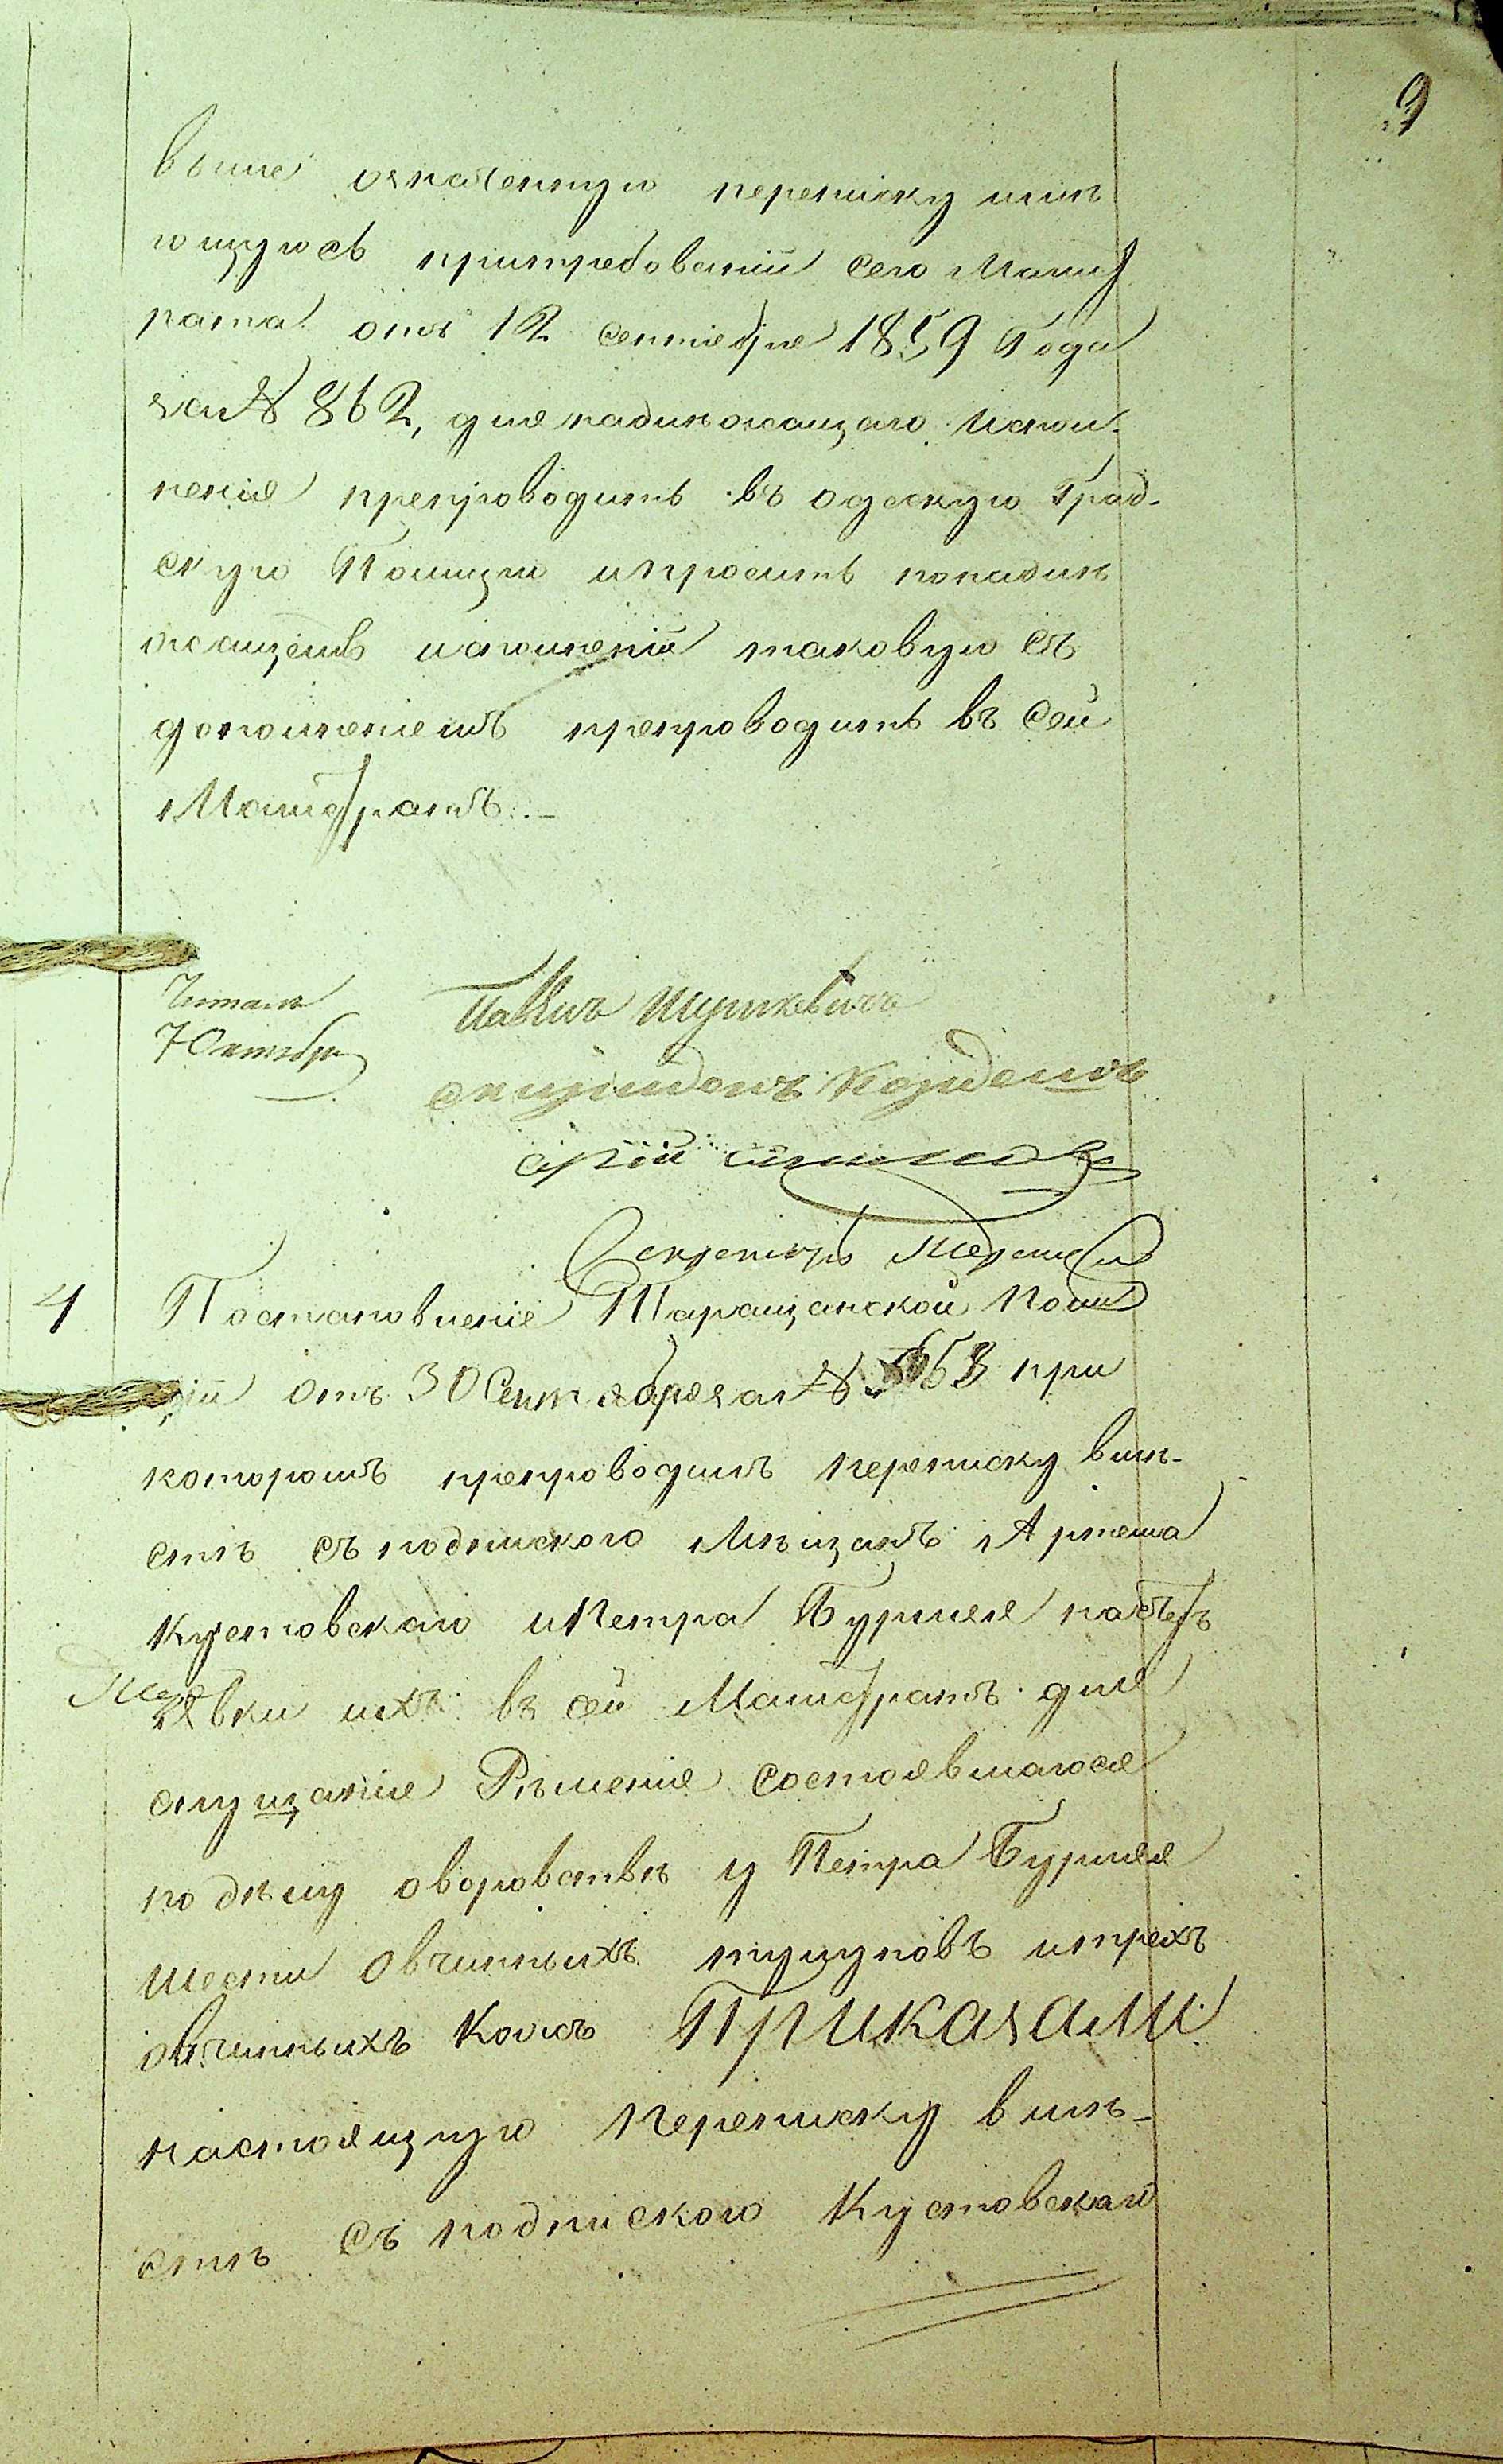 9
выше означенную переписку имѣ
ющуюсь притребованіи сего Магист
рата отъ 12 сентября 1859 Года
за № 862, для надлѣжащаго исполн-
ненія препроводить въ одескую Град-
скую Полицію и просить понадлѣ
жащемъ исполненіи таковую съ
дополненіемъ препроводить въ сей
Магистратъ.-
Читалъ
7 Октября
Павелъ
Секретарь
4 Постановленіе Таращанской Поли
ціи отъ 30 Сентября за № 5653 при
которомъ препроводитъ переписку вмѣ-
стѣ съ подпискою мѣщанъ Артема
Кустовскаго и Петра Бурлея
явки ихъ въ сей Магистратъ для
слушанія Рѣшенія состоявшагося
по дѣлу о воровствѣ у Петра Бурлея
шести овчинныхъ тулуповъ и трехъ
овчинныхъ кожъ Приказали
настоящую переписку вмѣ-
стѣ съ подпискою Кустовскаго